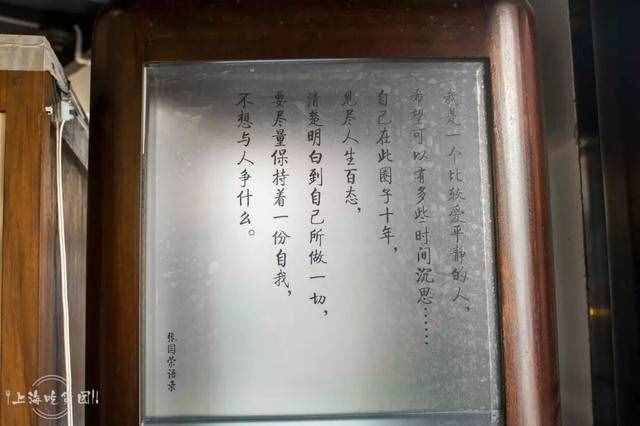 我是一个比较爱平静的人，
希望可以有多些时间沉思……
自己在此圈子十年，
见尽人生百态，
清楚明白到自己所做一切，
要尽量保持着一份自我，
不想与人争什么。
张国荣语录
上海吃货团